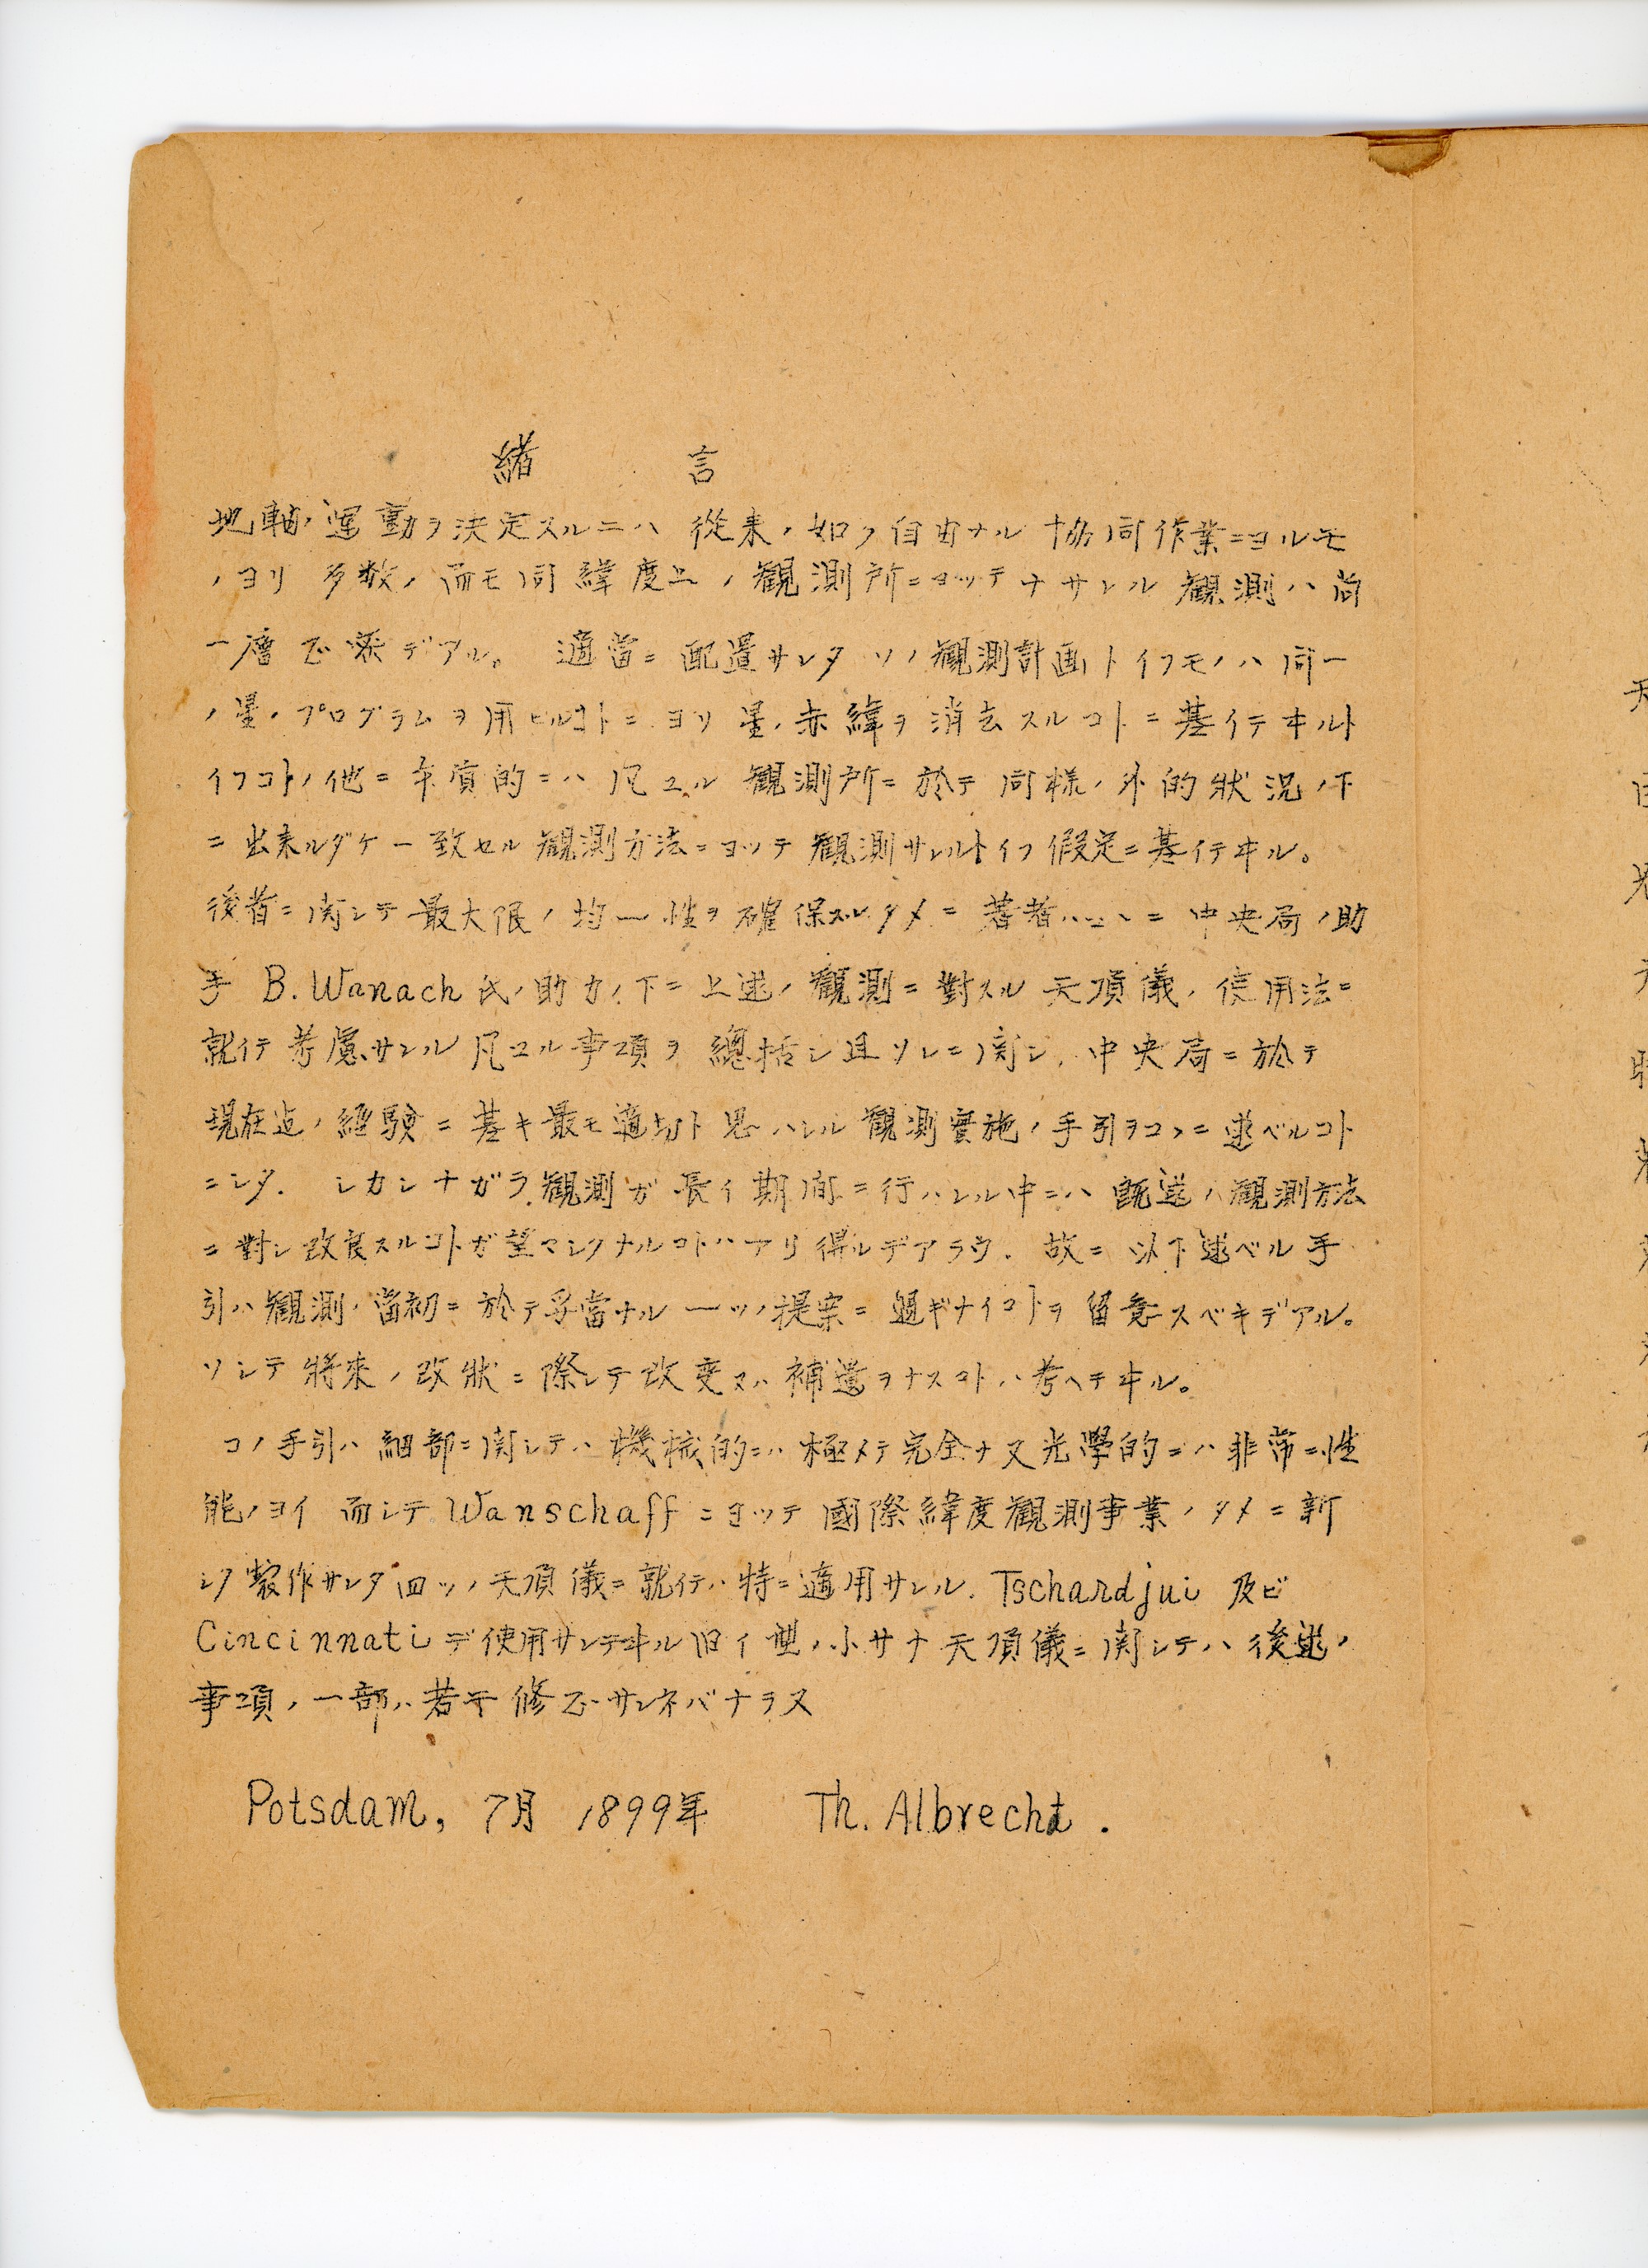 緒言
地軸ノ運動ヲ決定スルニハ 從来ノ如ク自由ナル 協同作業ニヨルモ
ノヨリ 多数ノ而モ同緯度上ノ観測所ニヨッテナサレル 観測ハ尚
一層正確デアル。 適當ニ配置サレタ ソノ観測計画トイフモノハ同一
ノ星ノプログラムヲ用ヒルコトニヨリ星ノ赤緯ヲ消去スルコトニ基イテヰルト
イフコトノ他ニ本質的ニハ凡ユル 観測所ニ於テ同様ノ外的狀況ノ下
ニ出来ルダケ一致セル観測方法ニヨッテ観測サレルトイフ假定ニ基イテヰル。
後者ニ関シテ最大限ノ均一性ヲ確保スルタメニ著者ハコヽニ中央局ノ助
手 B. Wanach 氏ノ助力ノ下ニ上述ノ観測ニ對スル天頂儀ノ使用法ニ
就イテ考慮サレル凡ユル事項ヲ總括シ且ソレニ関シ、中央局ニ於テ
現在迄ノ經験ニ基キ最モ適切ト思ハレル観測實施ノ手引ヲコヽニ述ベルコト
ニシタ. シカシナガラ観測ガ長イ期間ニ行ハレル中ニハ既述ノ観測方法
ニ對シ改良スルコトガ望マシクナルコトハアリ得ルデアラウ. 故ニ以下述ベル手
引ハ観測ノ當初ニ於テ妥當ナル一ツノ提案ニ過ギナイコトヲ留意スベキデアル。
ソシテ將來ノ改狀ニ際シテ改変又ハ補遺ヲナスコトハ考ヘテヰル。
コノ手引ハ細部ニ関シテハ機械的ニハ極メテ完全ナ又光學的ニハ非常ニ性
能ノヨイ 而シテ Wanschaff ニヨッテ國際緯度観測事業ノタメニ新
シク製作サレタ四ツノ天頂儀ニ就イテハ特ニ適用サレル. Tschardjui 及ビ
Cincinnati デ使用サレテヰル旧イ型ノ小サナ天頂儀ニ関シテハ後述ノ
事項ノ一部ハ若干修正サレネバナラヌ
Potsdam, 7月 1899年 Th. Albrecht.